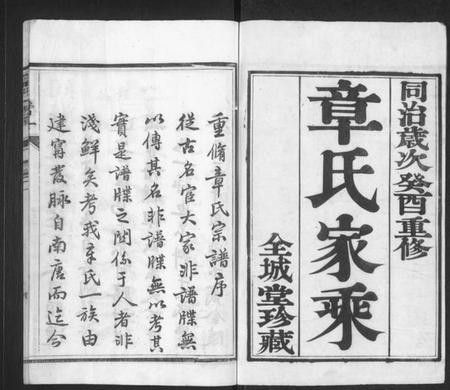 同治歲次癸酉重修
章氏家乘
全城堂珍藏
重脩章氏宗譜序
從古名宦大家非譜牒無
以傳其名非譜牒無以考其
實是譜牒之關係于人者非
淺鮮矣考我章氏一族由
建甯發脉自南唐而迄今